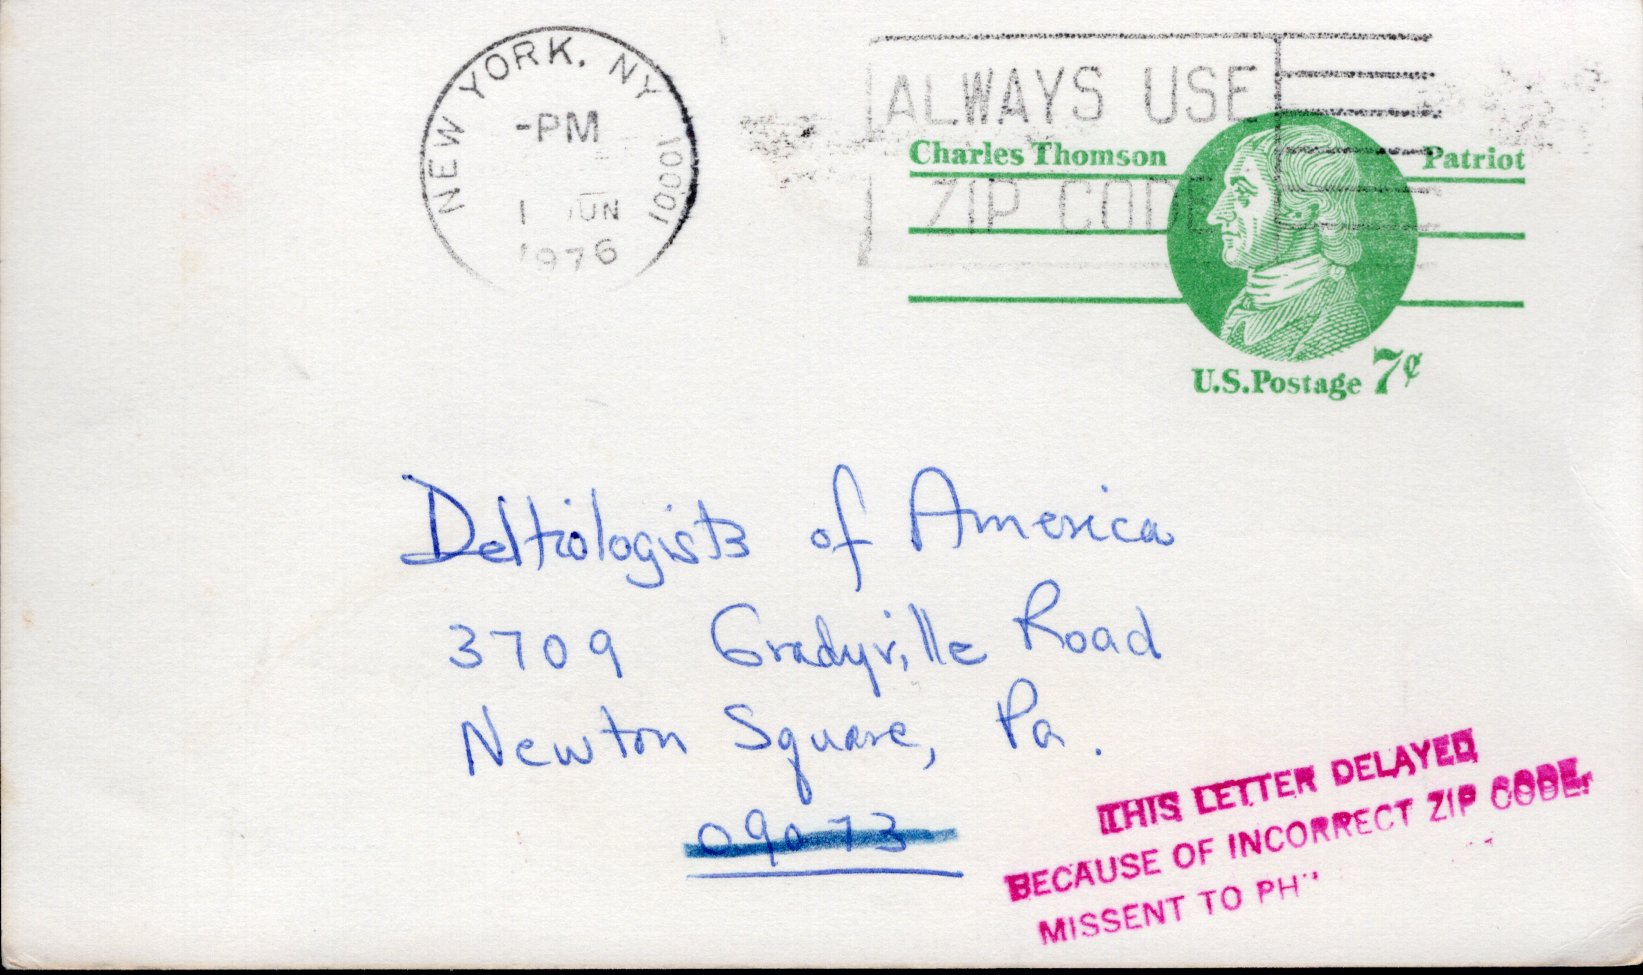 NEW YORK, NY 10001
-PM
1 JUN
1976
ALWAYS USE
ZIP CODE
Charles Thomson Patriot
U.S.Postage 7¢
Deltiologists of America
3709 Gradyville Road
Newton Square, Pa.
09073
THIS LETTER DELAYED
BECAUSE OF INCORRECT ZIP CODE.
MISSENT TO